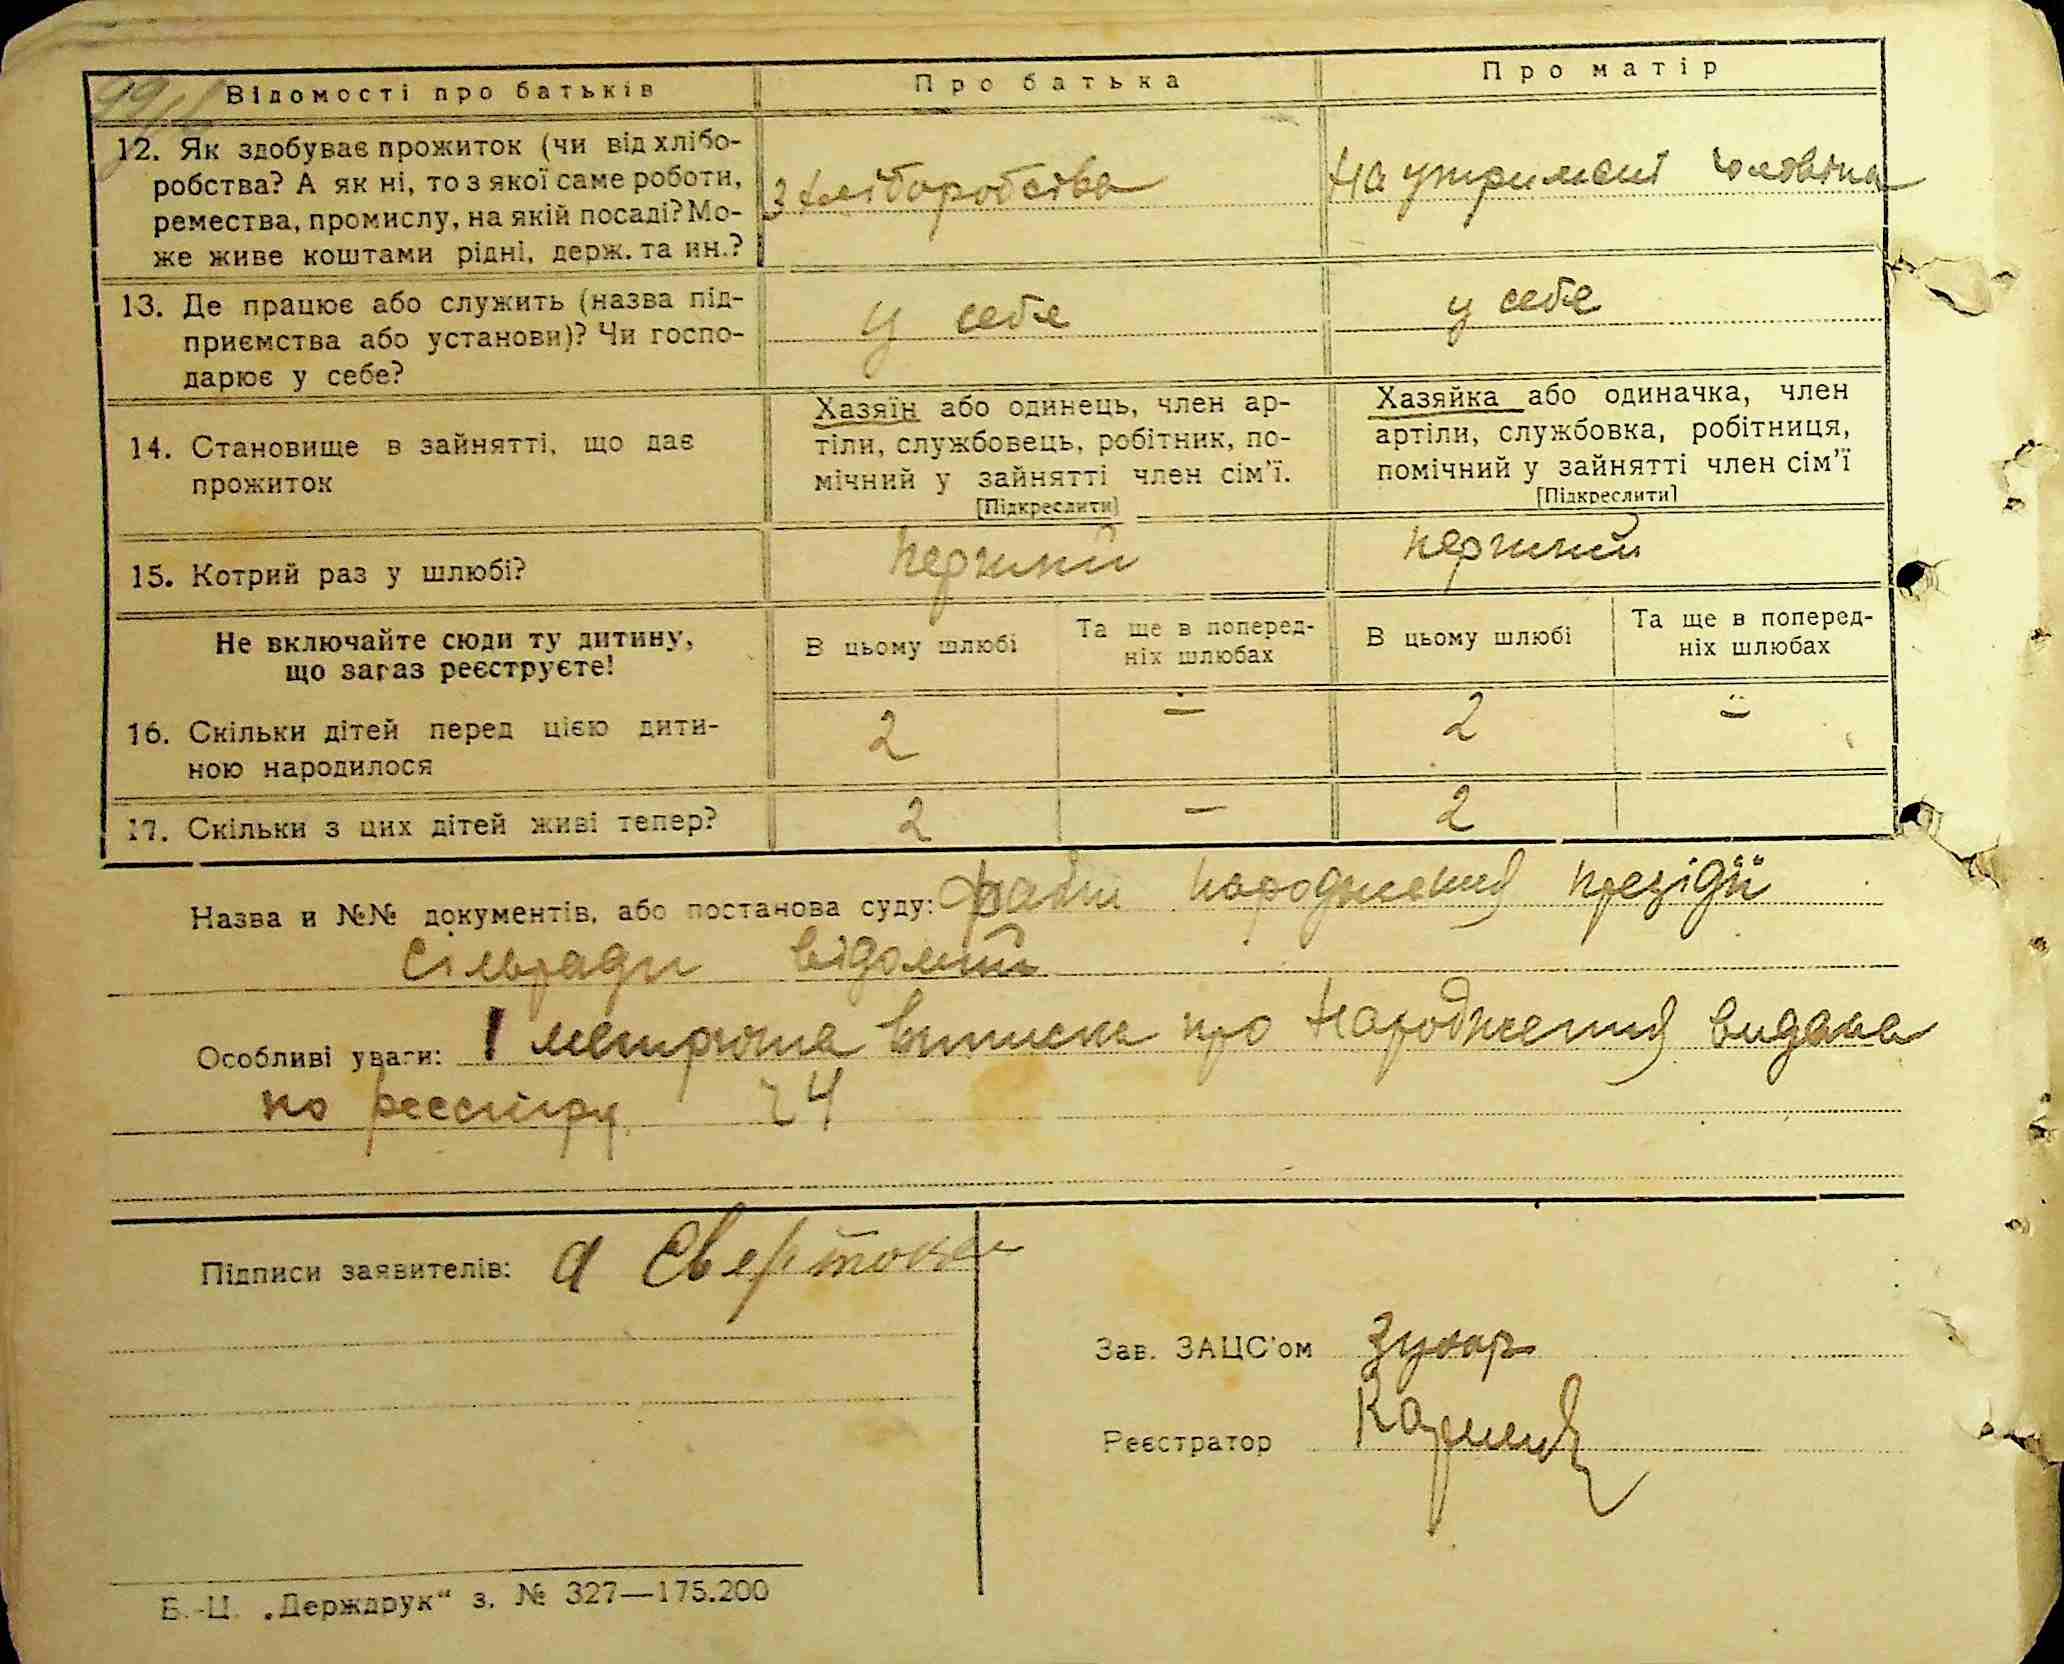 Відомості про батьків
Про батька
Про матір
12. Як здобуває прожиток (чи від хлібо-
робства? А як ні, то з якої саме роботи,
ремества, промислу, на якій посаді? Мо-
же живе коштами рідні, держ. та ин.?
з хліборобства
на утримані чоловіка
13. Де працює або служить (назва під-
приємства або установи)? Чи госпо-
дарює у себе?
у себе
у себе
14. Становище в зайнятті, що дає
прожиток
Хазяїн або одинець, член ар-
тіли, службовець, робітник, по-
мічний у зайнятті член сім'ї.
[Підкреслити]
Хазяйка або одиначка, член
артіли, службовка, робітниця,
помічний у зайнятті член сім'ї
[Підкреслити]
15. Котрий раз у шлюбі?
перший
перший
Не включайте сюди ту дитину,
що зараз реєструєте!
В цьому шлюбі
Та ще в поперед-
ніх шлюбах
В цьому шлюбі
Та ще в поперед-
ніх шлюбах
16. Скільки дітей перед цією дити-
ною народилося
2
2
17. Скільки з цих дітей живі тепер?
2
–
2
Назва и №№ документів, або постанова суду: факт народження презідії
сільради відомий
Особливі уваги: 1 метрична виписка про народження видана
по реєстру 24
Підписи заявителів: а
Зав. ЗАЦС'ом
Реєстратор
Б.-Ц. „Держдрук" з. № 327—175.200